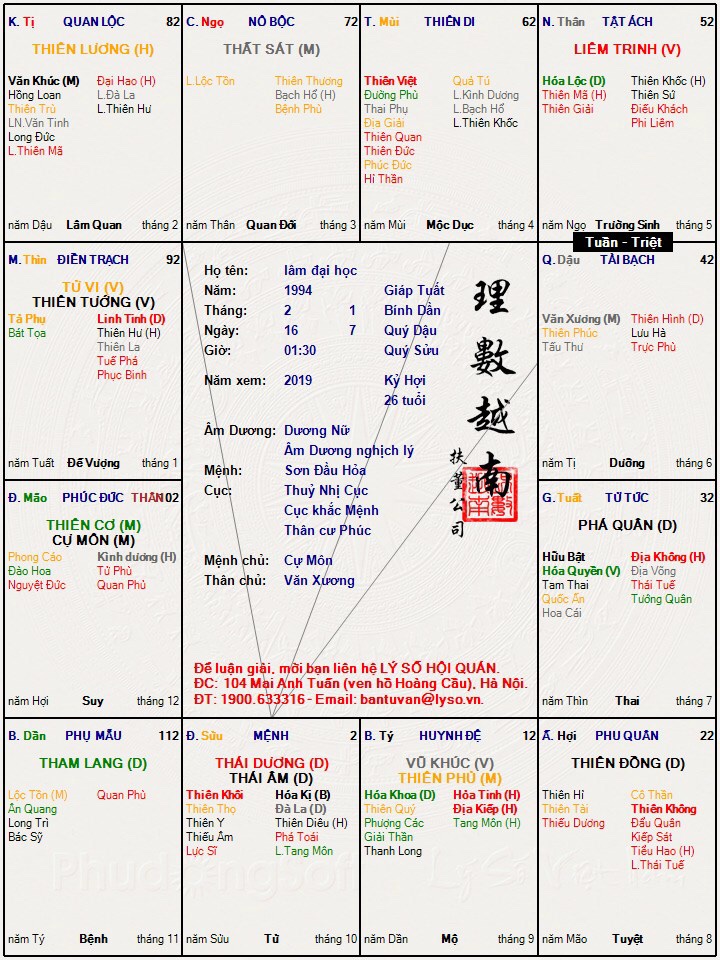 K. Tị QUAN LỘC 82
THIÊN LƯƠNG (H)
Văn Khúc (M) Đại Hao (H)
Hồng Loan L.Đà La
Thiên Trù L.Thiên Hư
LN.Văn Tinh
Long Đức
L.Thiên Mã
năm Dậu Lâm Quan tháng 2
C. Ngọ NÔ BỘC 72
THẤT SÁT (M)
L.Lộc Tồn Thiên Thương
Bạch Hổ (H)
Bệnh Phù
năm Thân Quan Đới tháng 3
T. Mùi THIÊN DI 62
Thiên Việt Quả Tú
Đường Phù L.Kình Dương
Thai Phụ L.Bạch Hổ
Địa Giải L.Thiên Khốc
Thiên Quan
Thiên Đức
Phúc Đức
Hỉ Thần
năm Mùi Mộc Dục tháng 4
N. Thân TẬT ÁCH 52
LIÊM TRINH (V)
Hóa Lộc (D) Thiên Khốc (H)
Thiên Mã (H) Thiên Sứ
Thiên Giải Điếu Khách
Phi Liêm
năm Ngọ Trường Sinh tháng 5
Tuần - Triệt
M. Thìn ĐIỀN TRẠCH 92
TỬ VI (V)
THIÊN TƯỚNG (V)
Tả Phụ Linh Tinh (D)
Bát Tọa Thiên Hư (H)
Thiên La
Tuế Phá
Phục Binh
năm Tuất Đế Vượng tháng 1
Họ tên: lâm đại học
Năm: 1994 Giáp Tuất
Tháng: 2 1 Bính Dần
Ngày: 16 7 Quý Dậu
Giờ: 01:30 Quý Sửu
Năm xem: 2019 Kỷ Hợi
26 tuổi
Âm Dương: Dương Nữ
Âm Dương nghịch lý
Mệnh: Sơn Đầu Hỏa
Cục: Thuỷ Nhị Cục
Cục khắc Mệnh
Thân cư Phúc
Mệnh chủ: Cự Môn
Thân chủ: Văn Xương
理數越南
扶董公司
Để luận giải, mời bạn liên hệ LÝ SỐ HỘI QUÁN.
ĐC: 104 Mai Anh Tuấn (ven hồ Hoàng Cầu), Hà Nội.
ĐT: 1900.633316 - Email: bantuvan@lyso.vn.
Q. Dậu TÀI BẠCH 42
Văn Xương (M) Thiên Hình (D)
Thiên Phúc Lưu Hà
Tấu Thư Trực Phù
năm Tị Dưỡng tháng 6
Đ. Mão PHÚC ĐỨC THÂN 102
THIÊN CƠ (M)
CỰ MÔN (M)
Phong Cáo Kình dương (H)
Đào Hoa Tử Phù
Nguyệt Đức Quan Phủ
năm Hợi Suy tháng 12
G. Tuất TỬ TỨC 32
PHÁ QUÂN (D)
Hữu Bật Địa Không (H)
Hóa Quyền (V) Địa Võng
Tam Thai Thái Tuế
Quốc Ấn Tướng Quân
Hoa Cái
năm Thìn Thai tháng 7
B. Dần PHỤ MẪU 112
THAM LANG (D)
Lộc Tồn (M) Quan Phù
Ân Quang
Long Trì
Bác Sỹ
năm Tý Bệnh tháng 11
Đ. Sửu MỆNH 2
THÁI DƯƠNG (D)
THÁI ÂM (D)
Thiên Khôi Hóa Kị (B)
Thiên Thọ Đà La (D)
Thiên Y Thiên Diêu (H)
Thiếu Âm Phá Toái
Lực Sĩ L.Tang Môn
năm Sửu Tử tháng 10
B. Tý HUYNH ĐỆ 12
VŨ KHÚC (V)
THIÊN PHỦ (M)
Hóa Khoa (D) Hỏa Tinh (H)
Thiên Quý Địa Kiếp (H)
Phượng Các Tang Môn (H)
Giải Thần
Thanh Long
năm Dần Mộ tháng 9
Ấ. Hợi PHU QUÂN 22
THIÊN ĐỒNG (D)
Thiên Hỉ Cô Thần
Thiên Tài Thiên Không
Thiếu Dương Đẩu Quân
Kiếp Sát
Tiểu Hao (H)
L.Thái Tuế
năm Mão Tuyệt tháng 8